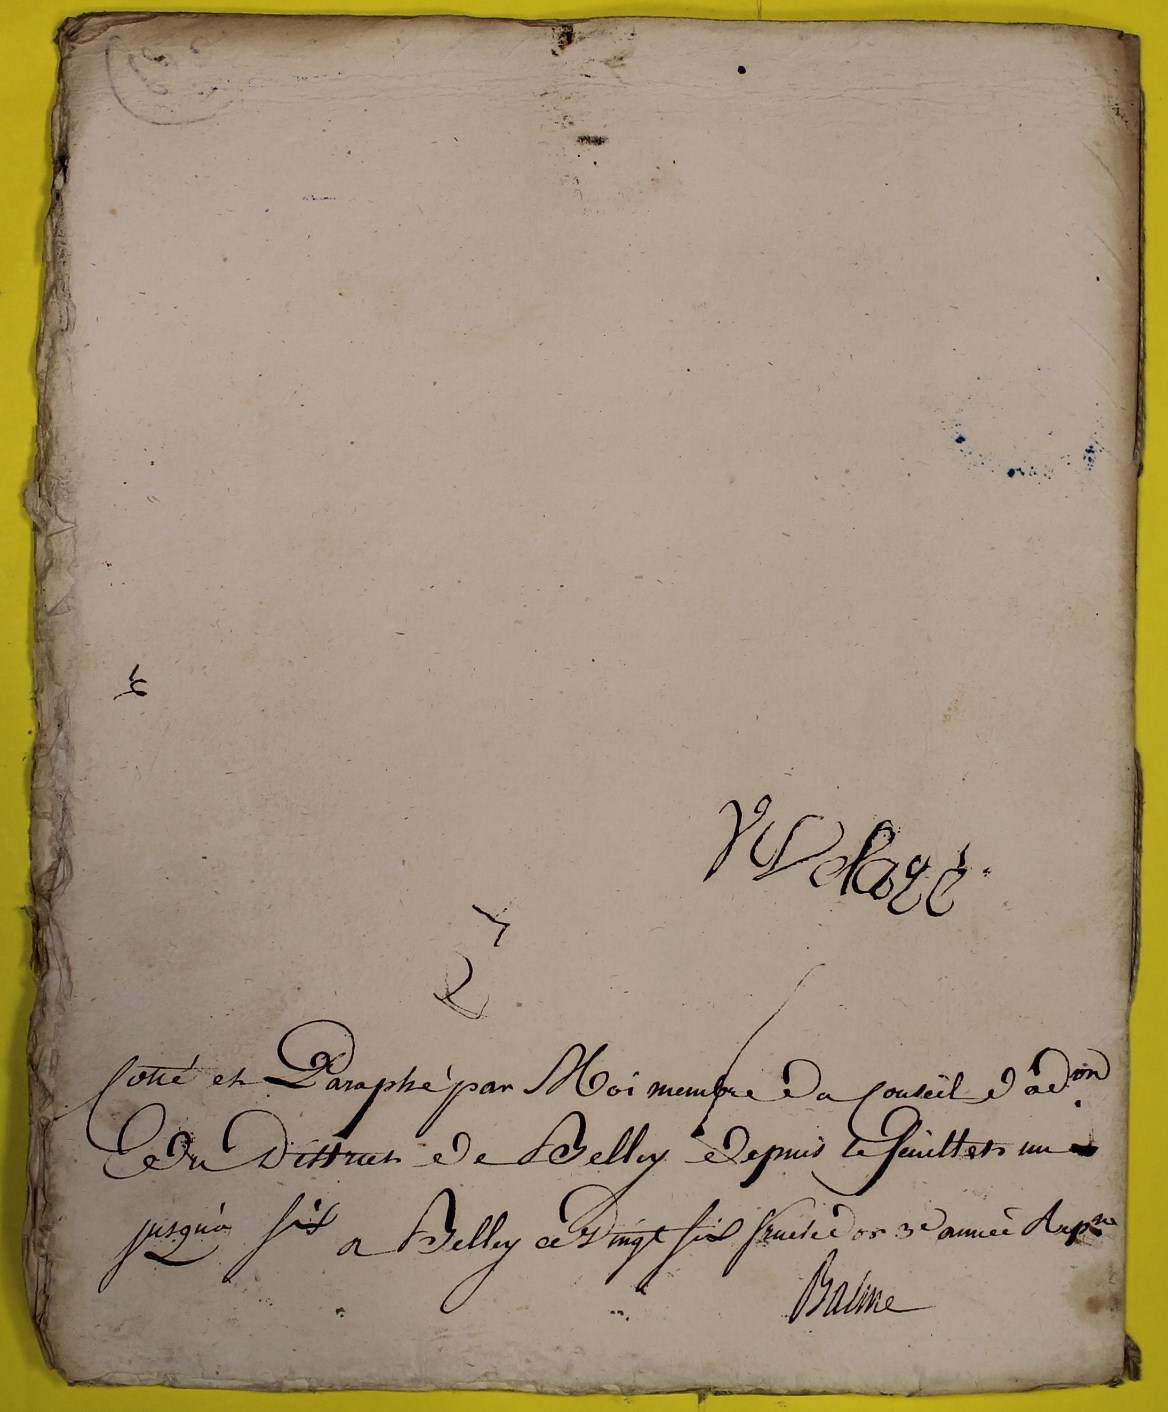 Cotté et Paraphé par Moi membre du Conseil d'ad.on
du District de Belley depuis le feuillet un
jusqu'à six a Belley ce Vingt six fructidor 3e année Rep.ne
Balme